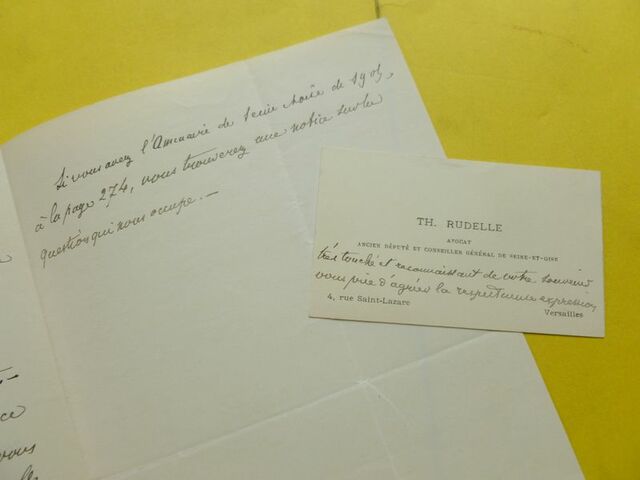 Si vous avez l'Annuaire de Seine & Oise de
à la page 274, vous trouverez une notice sur la
question qui nous occupe. —
ce
vous
TH. RUDELLE
AVOCAT
ANCIEN DÉPUTÉ ET CONSEILLER GÉNÉRAL DE SEINE-ET-OISE
très touché et reconnaissant de votre souvenir
vous prie d'agréer la respectueuse expression
4, rue Saint-Lazare
Versailles